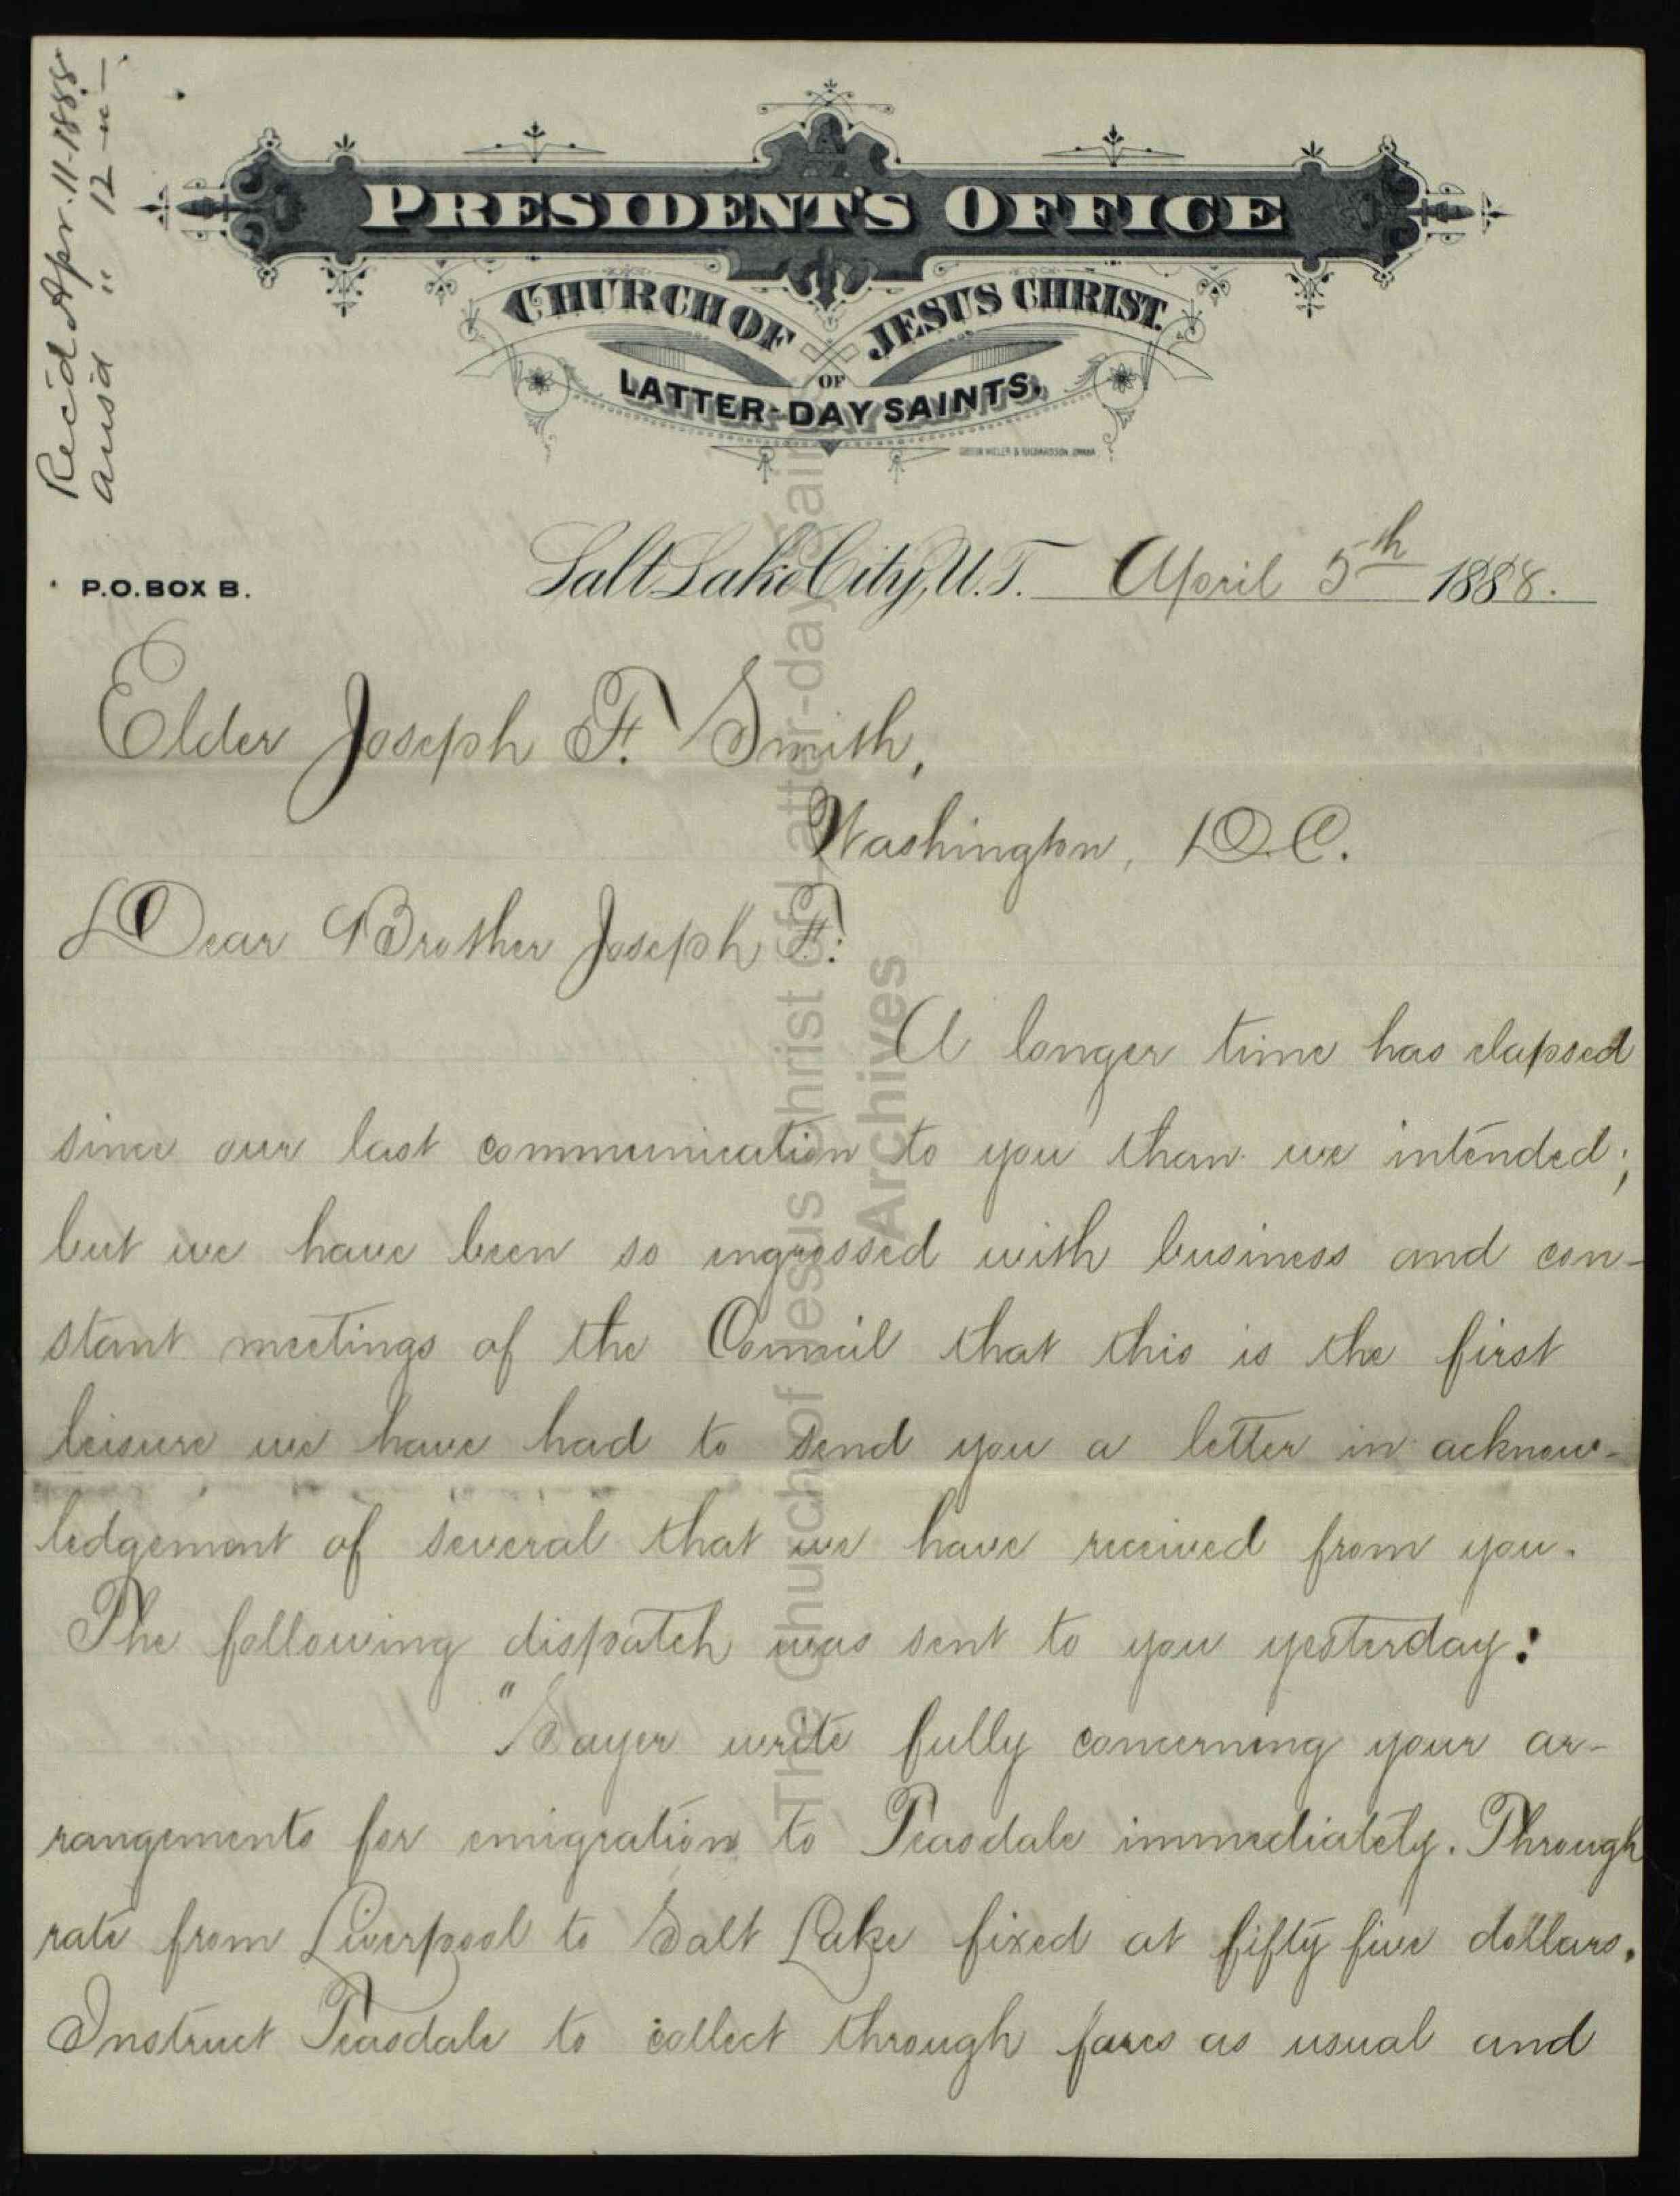 Rec'd Apr. 11-1888
ans'd " 12 - " -
PRESIDENT'S OFFICE
CHURCH OF JESUS CHRIST
OF
LATTER-DAY SAINTS.
P.O. BOX B.
Salt Lake City, U.T. April 5th 1888.
Elder Joseph F. Smith,
Washington, D.C.
Dear Brother Joseph F.:
A longer time has elapsed
since our last communication to you than we intended;
but we have been so engrossed with business and con-
stant meetings of the Council that this is the first
leisure we have had to send you a letter in acknow-
ledgement of several that we have received from you.
The following dispatch was sent to you yesterday:
"Sayer write fully concerning your ar-
rangements for emigration to Teasdale immediately. Through
rate from Liverpool to Salt Lake fixed at fifty five dollars.
Instruct Teasdale to collect through fares as usual and
The Church of Jesus Christ of Latter-day Saints
Archives